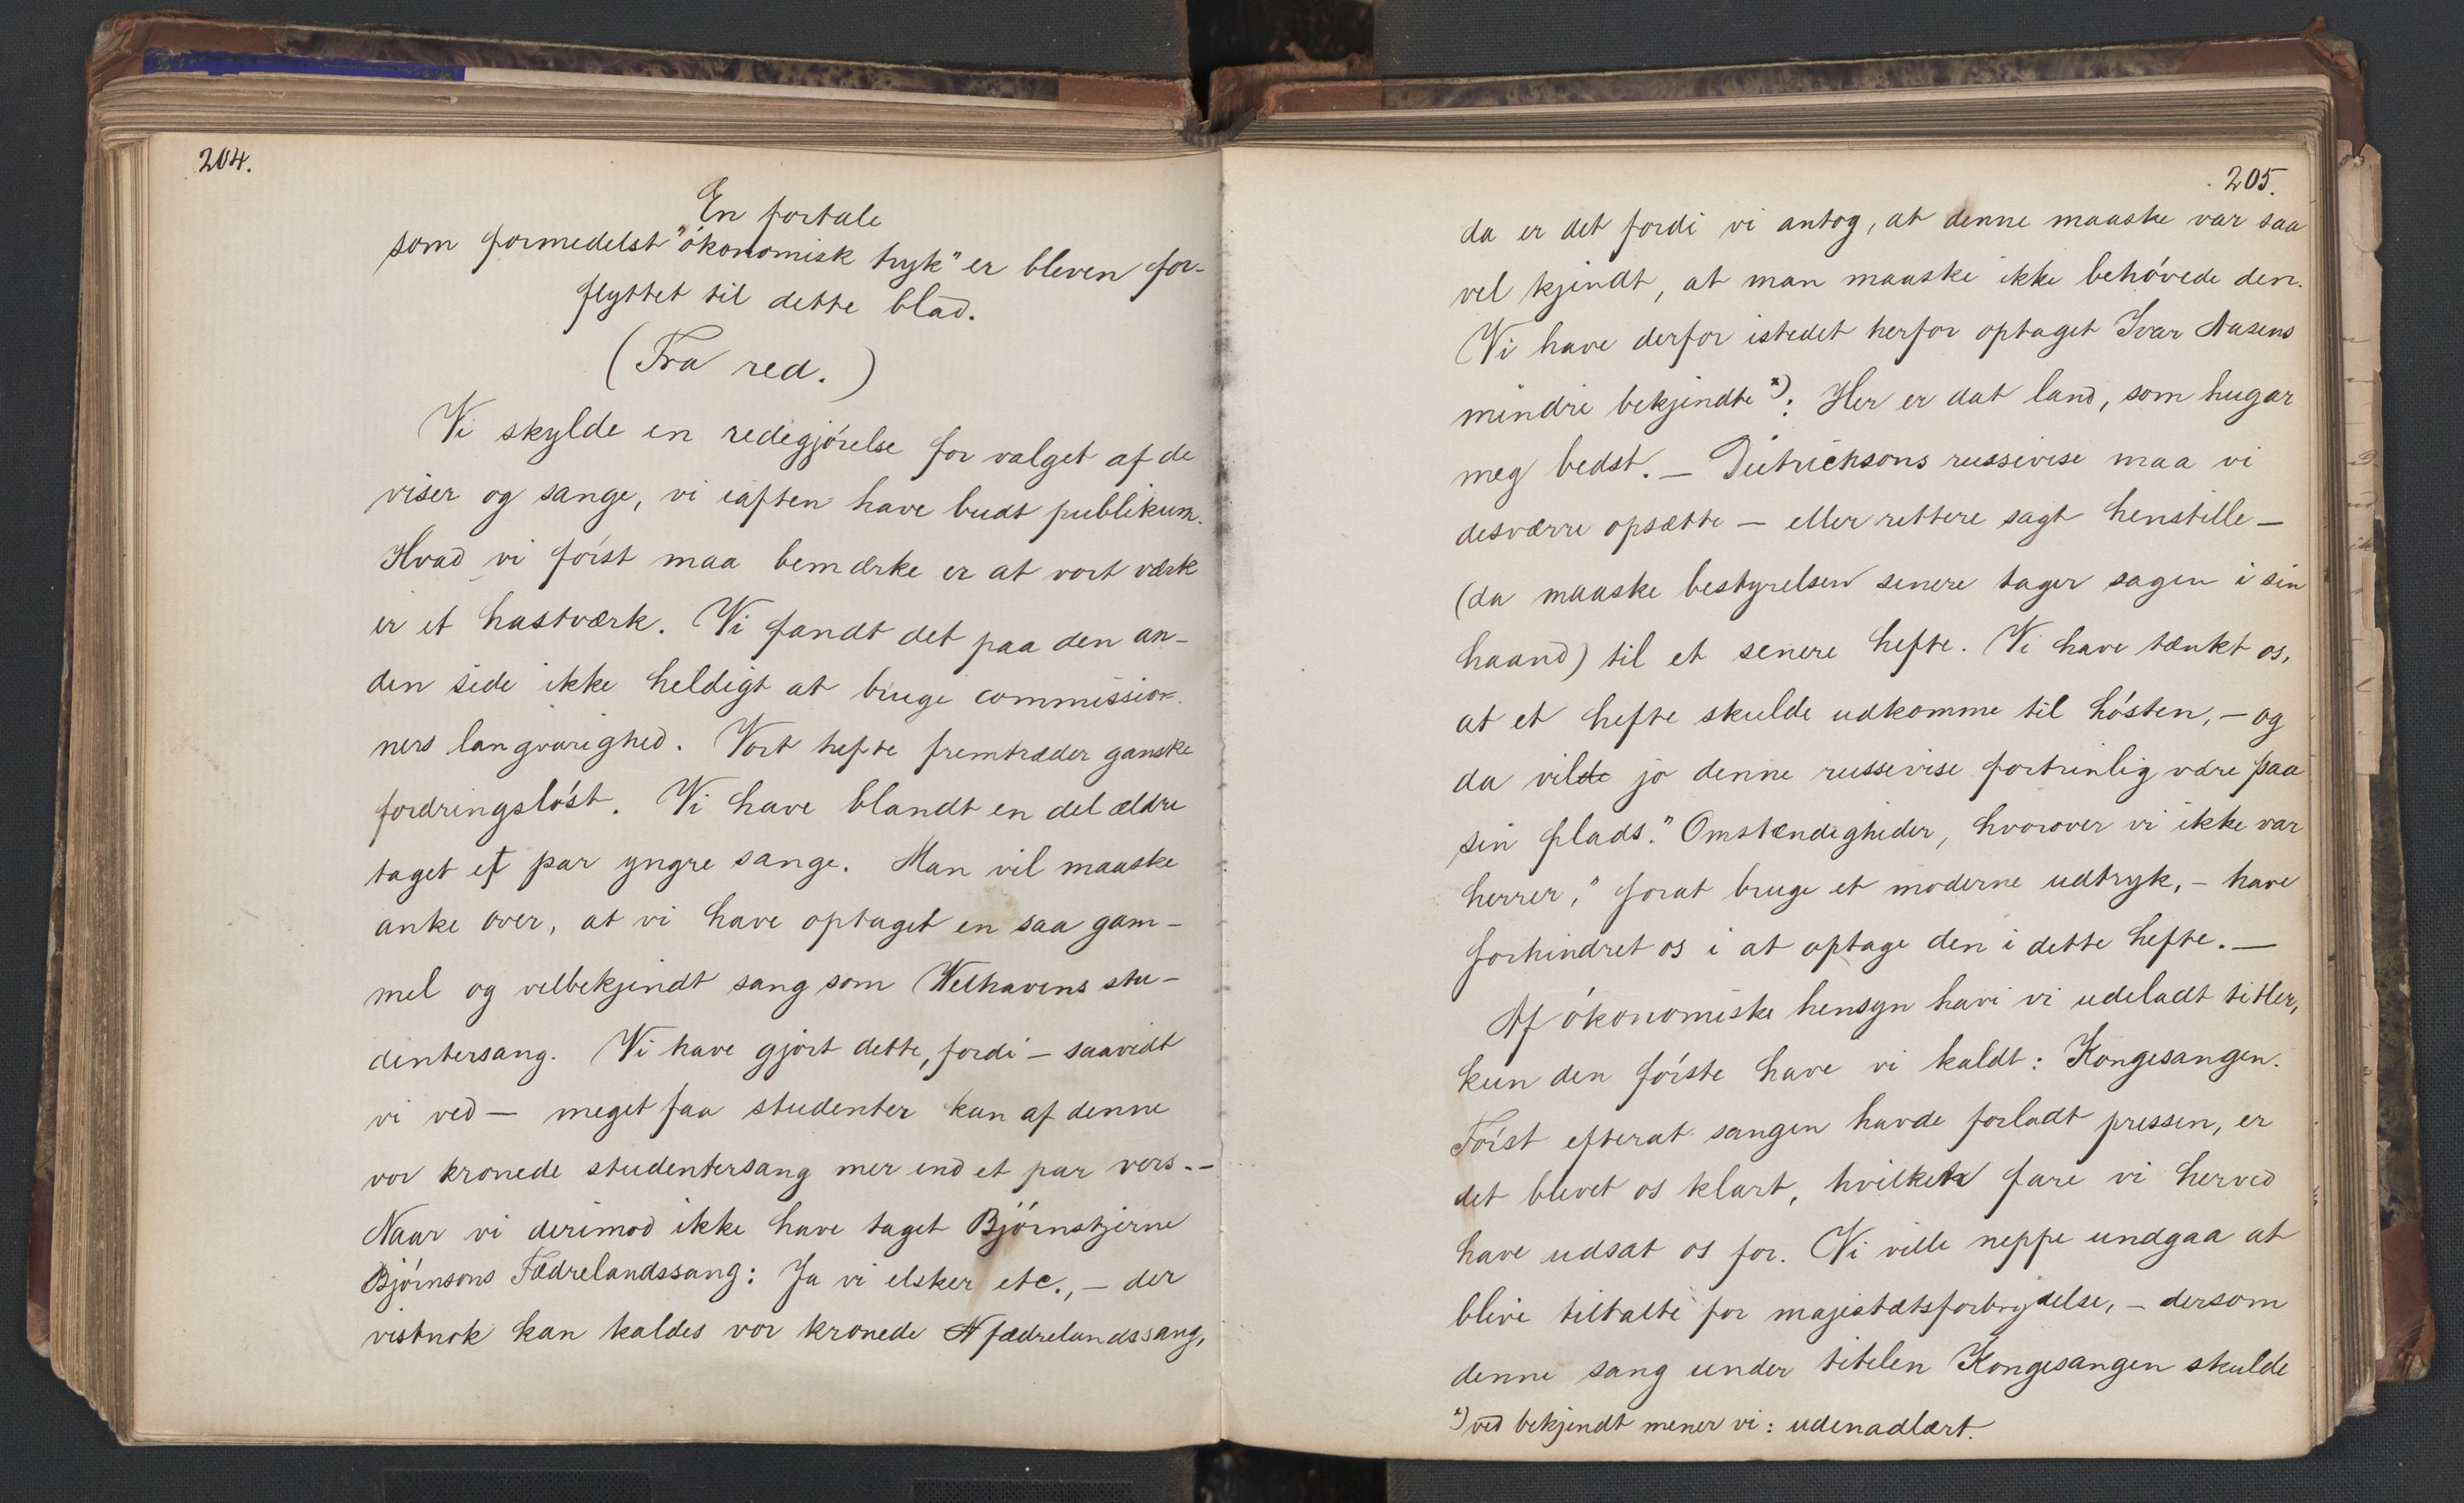 204.
En fortale
som formedelst "ökonomisk tryk" er bleven for-
flyttet til dette blad.
(Fra red.)
Vi skylde en redegjörelse for valget af de
viser og sange, vi iaften have budt publikum.
Hvad vi först maa bemærke er at vort værk
er et hastværk. Vi fandt det paa den an-
den side ikke heldigt at bruge commission-
ners langvarighed. Vort hefte fremtræder ganske
fordringslöst. Vi have blandt en del ældre
taget et par yngre sange. Man vil maaske
anke over, at vi have optaget en saa gam-
mel og velbekjendt sang som Welhavens stu-
dentersang. Vi have gjort dette, fordi - saavidt
vi ved - meget faa studenter kan af denne
vor kronede studentersang mer end et par vers. -
Naar vi derimod ikke have taget Björnstjerne
Björnsons Fædrelandssang: Ja vi elsker etc., - der
vistnok kan kaldes vor kronede fædrelandssang,
205.
da er det fordi vi antog, at denne maaske var saa
vel kjendt, at man maaske ikke behövede den.
Vi have derfor istedet herfor optaget Ivar Aasens
mindre bekjendte *): Her er dat land, som hugar
meg bedst. - Dietrichsons russevise maa vi
desværre opsætte - eller rettere sagt henstille -
(da maaske bestyrelsen senere tager sagen i sin
haand) til et senere hefte. Vi have tænkt os,
at et hefte skulde udkomme til hösten, - og
da vilde jo denne russevise fortrinlig være paa
sin plads. "Omstændigheder, hvorover vi ikke var
herrer," forat bruge et moderne udtryk, - have
forhindret os i at optage den i dette hefte. -
Af ökonomiske hensyn have vi udeladt titler,
kun den förste have vi kaldt: Kongesangen.
Först efterat sangen havde forladt pressen, er
det blevet os klart, hvilken fare vi herved
have udsat os for. Vi ville neppe undgaa at
blive tiltalte for majestætsforbrydelse, - dersom
denne sang under titelen Kongesangen skulde
*) ved bekjendt mener vi: udenadlært.